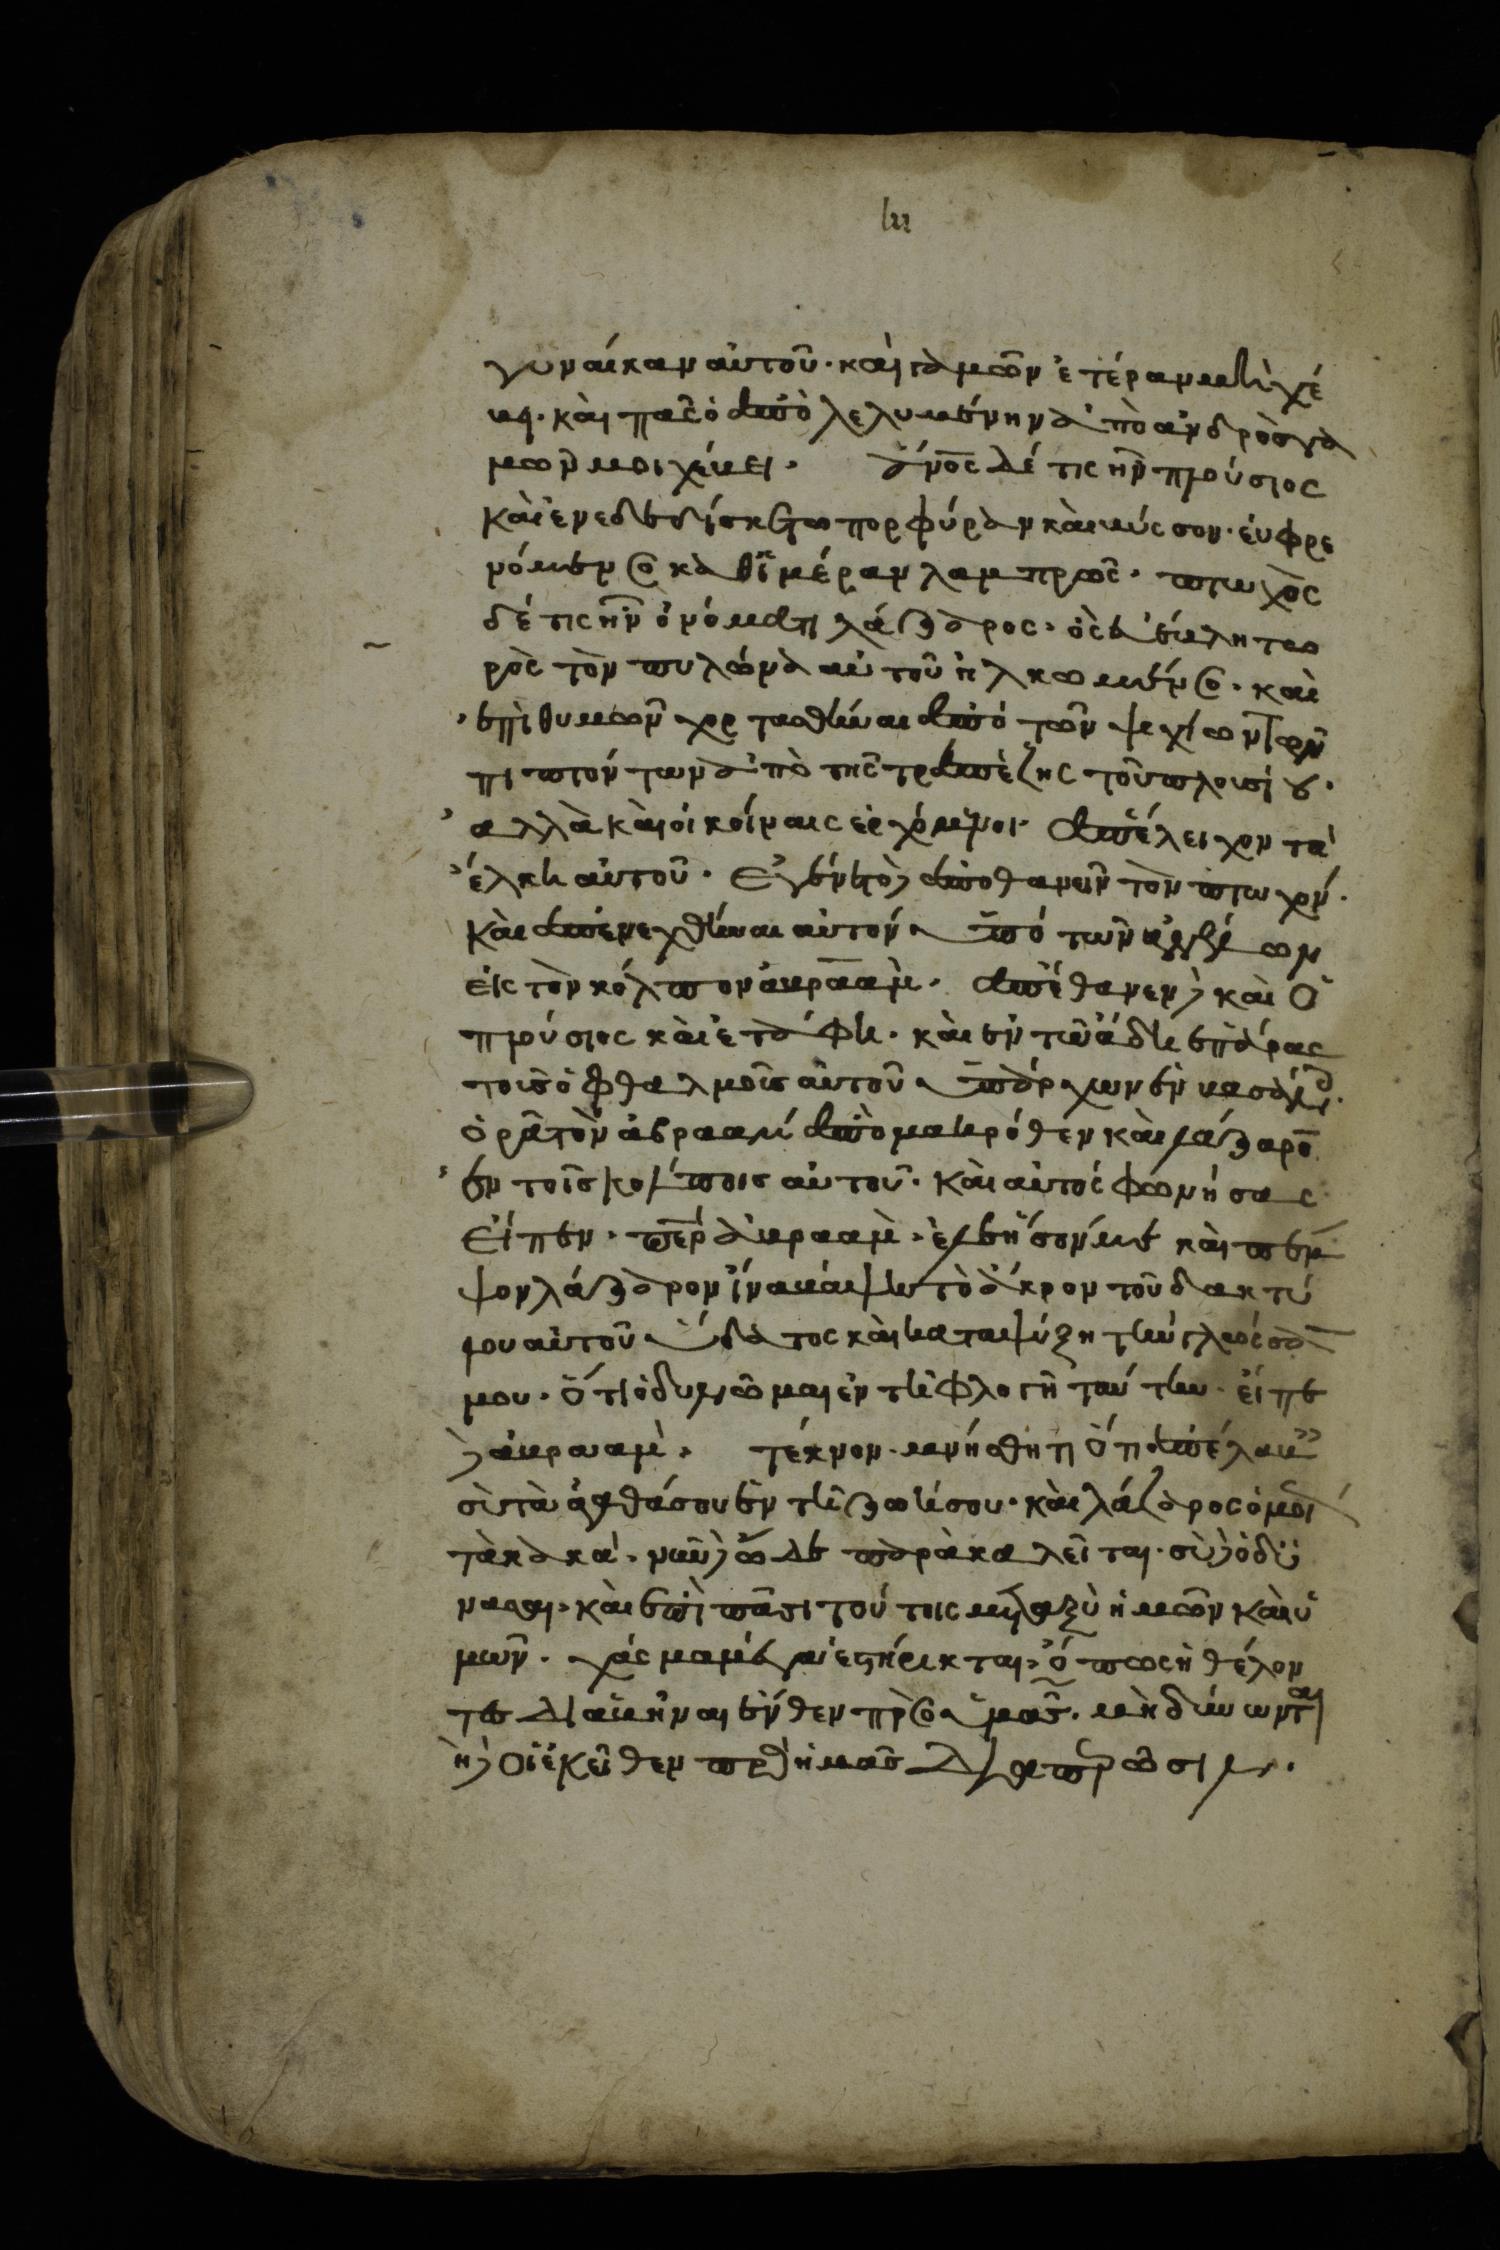 γυναίκαν αὐτοῦ· καὶ γαμῶν ἑτέραν μοιχέ
υει· καὶ πᾶς ὁ ἀπολελυμένην ἀπὸ ἀνδρὸς γα
μῶν μοιχεύει· ἄνος δέ τις ἦν πλούσιος
καὶ ἐνεδεδίσκετω πορφύραν καὶ βύσσον· εὐφρε
νόμενος καθ ἡμέραν λαμπρῶς· πτωχὸς
δέ τις ἦν ὀνόματι λάζαρος· ὃς ἐβέβλητω
ρὸς τὸν πυλῶνα αὐτοῦ ἡλκωμένος· καὶ
ἐπιθυμῶν χορτασθῆναι ἀπὸ τῶν ψιχίων τῶν
πιπτόντων ἀπὸ τῆς τραπέζης τοῦ πλουσίου·
ἀλλὰ καὶ οἱ κοίναις ἐρχόμενοι ἀπέλειχον τὰ
ἕλκη αὐτοῦ· Ἐγένετο δὲ ἀποθανεῖν τὸν πτωχόν·
καὶ ἀπενεχθῆναι αὐτὸν ὑπὸ τῶν ἀγγέλων
εἰς τὸν κόλπον ἀβραάμ· ἀπέθανεν δὲ καὶ ὁ
πλούσιος καὶ ἐτάφη· καὶ ἐν τῶ ἅδη ἐπάρας
τοὺς ὀφθαλμοῖς αὐτοῦ ὑπάρχων ἐν βασάνοις·
ὁρᾶ τὸν ἀβραὰμ ἀπὸ μακρόθεν καὶ λάζαρον
ἐν τοῖς κολποις αὐτοῦ· καὶ αὐτὸς φωνήσας
εἶπεν· περ ἀβραὰμ· ἐλεήσον με καὶ πέμ
ψον λάζαρον ἵνα βάψη τὸ ἄκρον τοῦ δακτύ
λου αὐτοῦ ὕδατος καὶ καταψύξη τὴν γλῶσσα
μου· ὅτι ὀδυνῶμαι ἐν τῆ φλογῆ ταύτην· εἶπε
δὲ ἀβραὰμ· τέκνον· μνήσθητι ὅτι ἀπέλαβες
σὺ τὰ ἀγαθά σου ἐν τῆ ζωή σου· καὶ λάζαρος ὁμοί
τὰ κακά· νῦν δὲ ὧδε παρακαλεῖται· σὺ δὲ ὀδύ
νασαι· καὶ ἐπὶ πᾶσι τούτοις μεταξὺ ἡμῶν καὶ ὑ
μῶν· χάσμα μέγα ἐστήρικται· ὅπως ἡ θέλον
τες διαβῆναι ἔνθεν πρὸς ὑμᾶς· μὴ δύνωνται
ἡ δὲ οἱ ἐκεῖθεν πρὸς ἡμᾶς διαπερῶσιν·